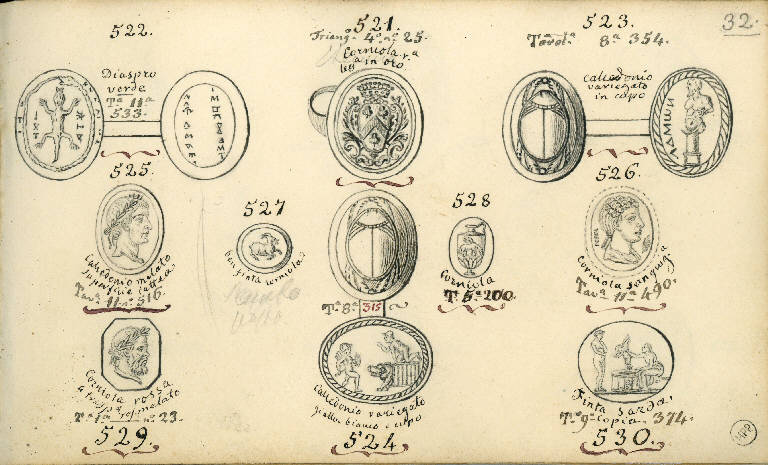 32.
522.
Diaspro
verde
Tª 11ª
533.
521.
Triangº 4º nº 25.
Corniola
in oro
523.
Tavolª 8ª 354.
Calcedonio
variegato
in cupo
ΛΔΜΩΗ
525.
Calcedonio melato
superficie lattea.
Tavª 11ª nº 516.
527
Ben finta corniola.
528
Corniola
Tª 5ª 200.
526.
Corniola sanguigª
Tavª 11ª 490.
Tª 8ª 315
Corniola rossa
melato
Tª 1ª nº 23.
529.
Calcedonio variegato
giallo bianco e cupo
524.
Finta Sarda.
Tª 9ª Copia. 374.
530.